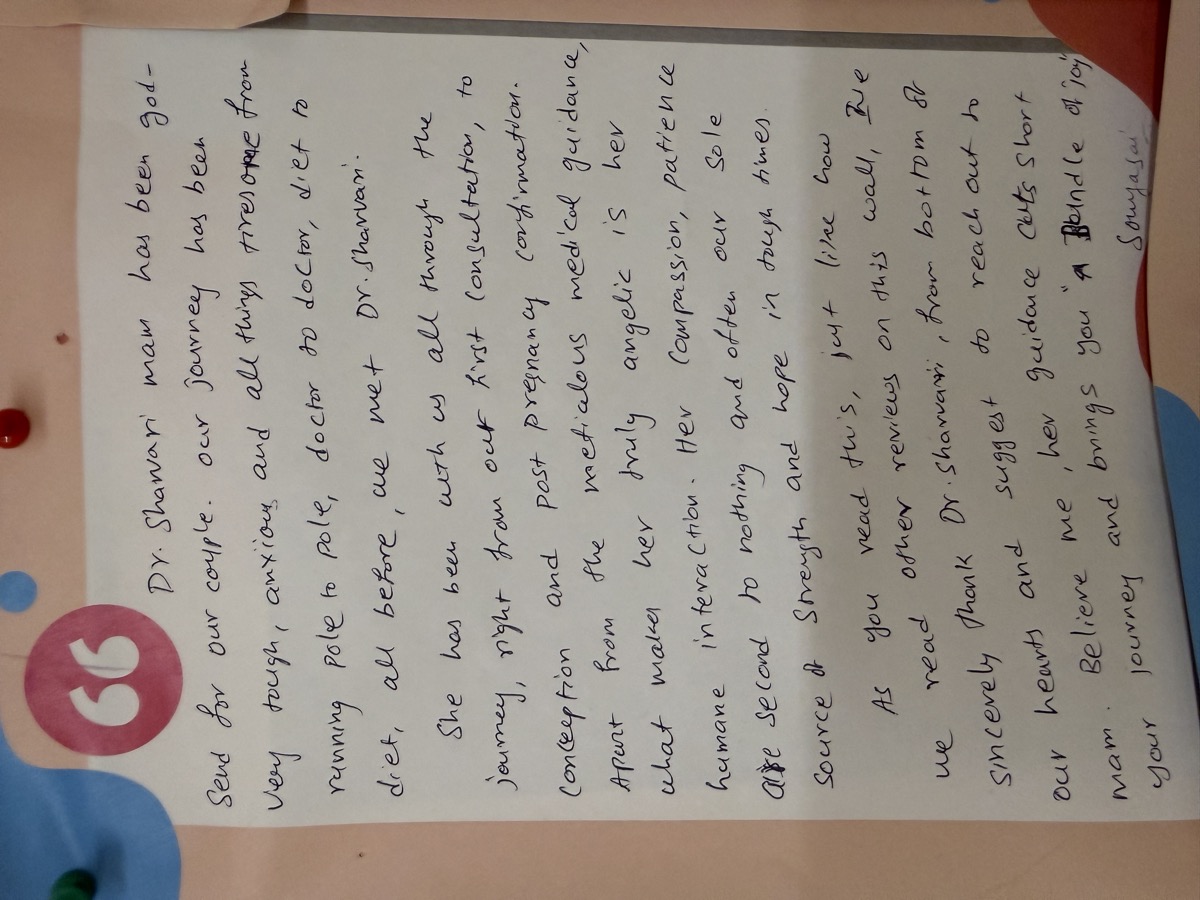 Dr. Sharvari mam has been god-
send for our couple. our journey has been
very tough, anxious, and all things tiresome from
running pole to pole, doctor to doctor, diet to
diet, all before, we met Dr. Sharvari.
She has been with us all through the
journey, right from our first consultation, to
conception and post pregnancy confirmation.
Apart from the meticulous medical guidance,
what makes her truly angelic is her
humane interaction. Her compassion, patience
are second to nothing and often our sole
source of strength and hope in tough times.
As you read this, just like how
we read other reviews on this wall, we
sincerely thank Dr. Sharvari, from bottom of
our hearts and suggest to reach out to
mam. Believe me, her guidance cuts short
your journey and brings you "a Bundle of joy"
Sowyasai